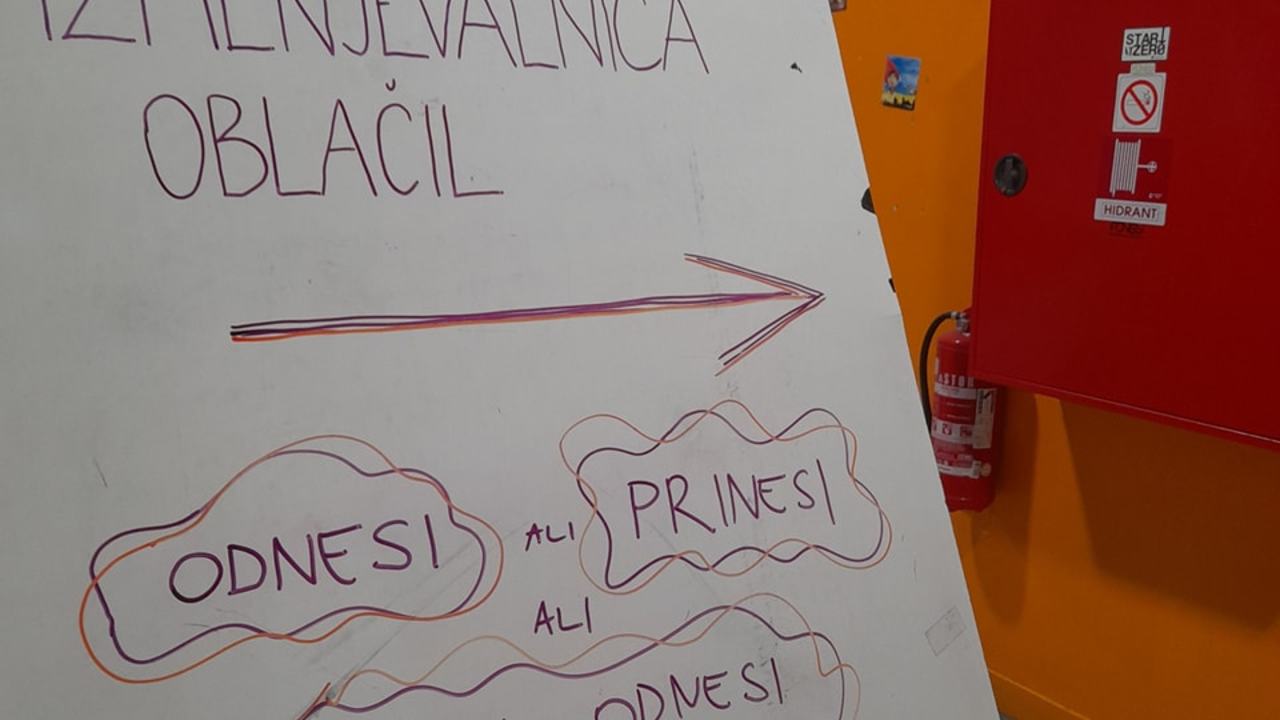 IZMENJEVALNICA
OBLAČIL
ODNESI
ALI
PRINESI
ALI
ODNESI
HIDRANT